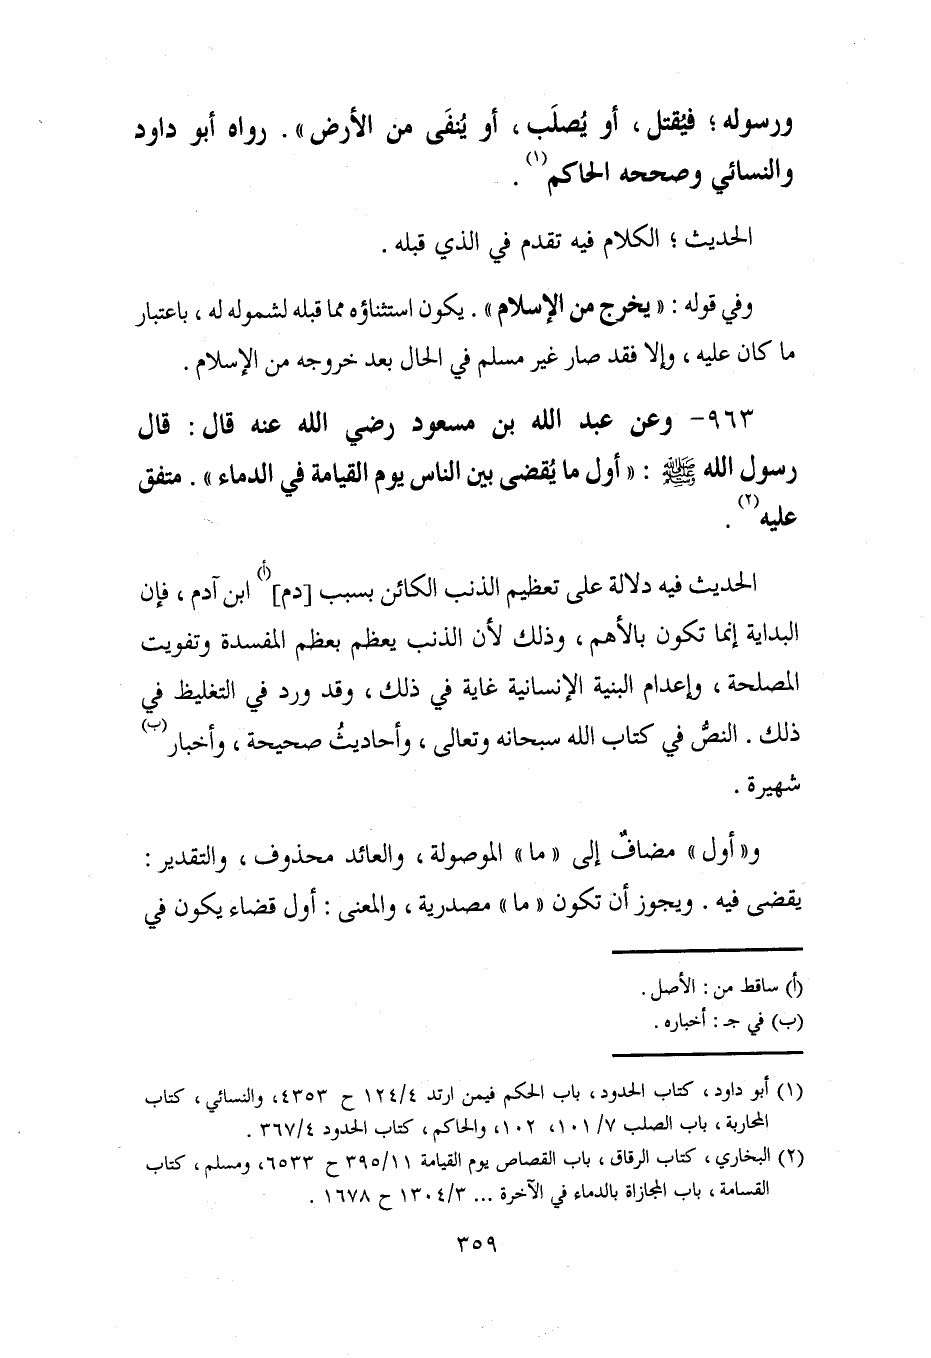 ورسوله ؛ فيُقتل ، أو يُصلَب ، أو يُنفَى من الأرض » . رواه أبو داود
والنسائي وصححه الحاكم(١) .
الحديث ؛ الكلام فيه تقدم في الذي قبله .
وفي قوله : « يخرج من الإسلام » . يكون استثناؤه مما قبله لشموله له ، باعتبار
ما كان عليه ، وإلا فقد صار غير مسلم في الحال بعد خروجه من الإسلام .
٩٦٣- وعن عبد الله بن مسعود رضي الله عنه قال : قال
رسول الله ﷺ : « أول ما يُقضى بين الناس يوم القيامة في الدماء » . متفق
عليه(٢) .
الحديث فيه دلالة على تعظيم الذنب الكائن بسبب [دم](أ) ابن آدم ، فإن
البداية إنما تكون بالأهم ، وذلك لأن الذنب يعظم بعظم المفسدة وتفويت
المصلحة ، وإعدام البنية الإنسانية غاية في ذلك ، وقد ورد في التغليظ في
ذلك . النصُّ في كتاب الله سبحانه وتعالى ، وأحاديثُ صحيحة ، وأخبار(ب)
شهيرة .
و« أول » مضافٌ إلى « ما » الموصولة ، والعائد محذوف ، والتقدير :
يقضى فيه . ويجوز أن تكون « ما » مصدرية ، والمعنى : أول قضاء يكون في
(أ) ساقط من : الأصل .
(ب) في جـ : أخباره .
(١) أبو داود ، كتاب الحدود ، باب الحكم فيمن ارتد ١٢٤/٤ ح ٤٣٥٣، والنسائي ، كتاب
المحاربة ، باب الصلب ١٠١/٧، ١٠٢، والحاكم ، كتاب الحدود ٣٦٧/٤ .
(٢) البخاري ، كتاب الرقاق ، باب القصاص يوم القيامة ٣٩٥/١١ ح ٦٥٣٣، ومسلم ، كتاب
القسامة ، باب المجازاة بالدماء في الآخرة ... ١٣٠٤/٣ ح ١٦٧٨ .
٣٥٩